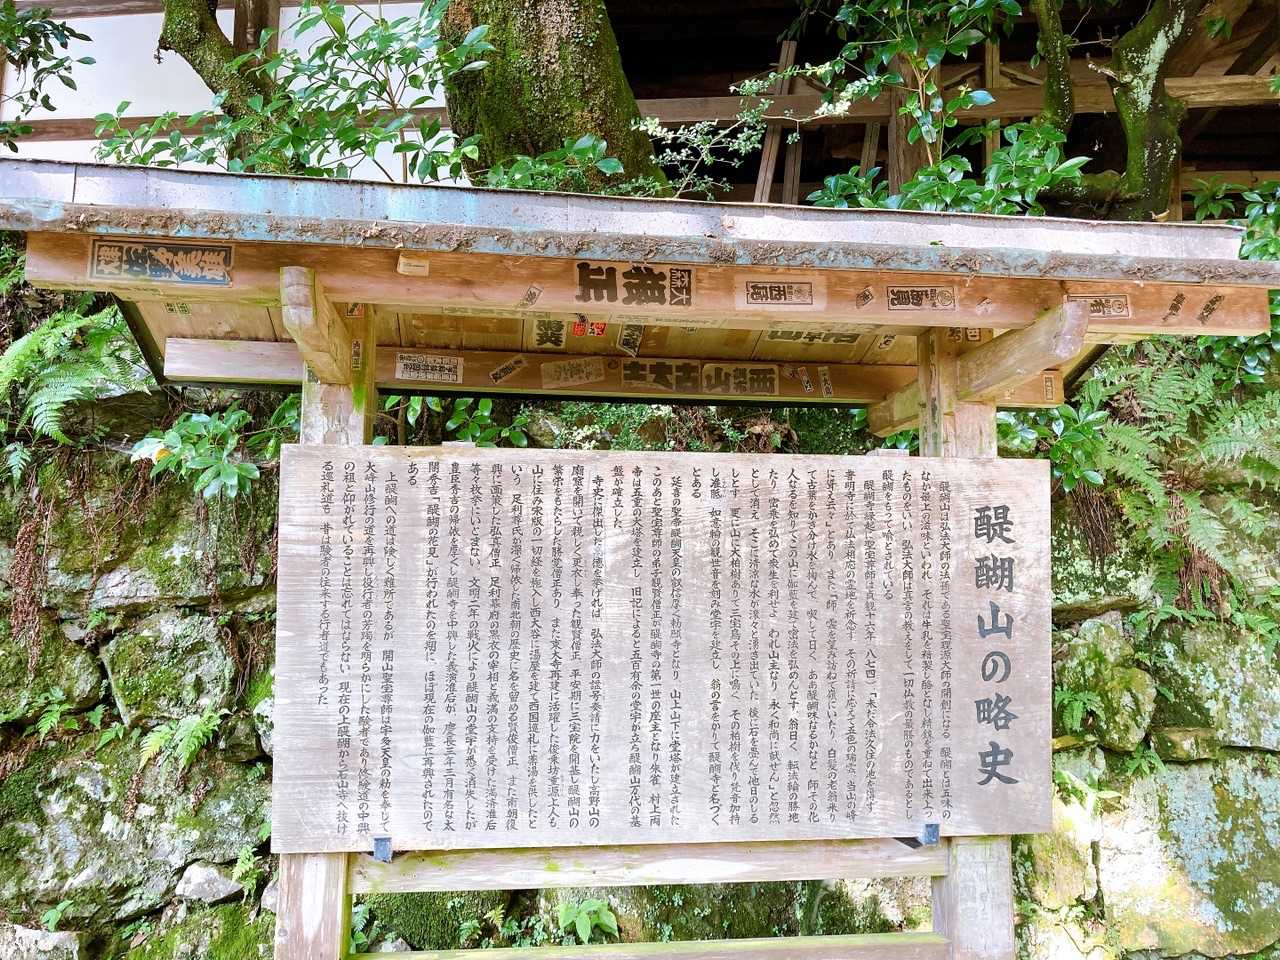 醍醐山の略史
醍醐山は弘法大師の法孫である聖宝理源大師の開創になる 醍醐とは五味の
なか最上の滋味といわれ それは牛乳を精製し酪となり精錬を重ねて出来上っ
たものをいい 弘法大師は真言の教えをして一切仏教の最勝のものであるとし
醍醐をもって喩とされている
醍醐寺縁起に聖宝尊師は貞観十六年（八七四）「未だ令法久住の地を得ず
普明寺に於て仏法相応の霊地を祈念す その祈請に応えて五色の瑞雲 当山の峰
に聳え云々」とあり また「師 雲を望み訪ねて嶺にいたり 白髪の老翁来り
て古葉をかき分け水を掬んで 喫して曰く ああ醍醐味なるかなと 師その化
人なるを知りてこの山に伽藍を建て密法を弘めんとす 翁曰く 転法輪の勝地
たり 密乗を弘めて衆生を利せよ われ山主なり 永く和尚に献せん」と忽然
として消え そこに清涼な水が滾々と湧き出ていた 後に石を畳んで他日のしる
しとす 更に山に大柏樹ありて三宝鳥その上に鳴く その柏樹を伐り梵音加持
し准胝 如意輪の観世音を刻み堂宇を建立し 翁の言をかりて醍醐寺と名づく
とある
延喜の聖帝醍醐天皇の叡信厚く勅願寺となり 山上山下に堂塔が建立された
このあと聖宝尊師の弟子観賢僧正が醍醐寺の第一世の座主となり朱雀 村上両
帝は五重の大塔を建立し 旧記によると五百有余の堂宇が立ち醍醐山万代の基
盤が確立した
寺史に傑出した高徳を挙げれば 弘法大師の諡号奏請に力をいたし高野山の
廟窟を開いて親しく更衣し奉った観賢僧正 平安期に三宝院を開基し醍醐山の
繁栄をもたらした勝覚僧正あり また東大寺再建に活躍した俊乗坊重源上人も
山に住み宋版の一切経を施入し西大谷に湯屋を建て西国巡礼に薬湯を供したと
いう 足利尊氏が深く帰依した南北朝の歴史に名を留める賢俊僧正 また南朝復
興に画策した弘真僧正 足利幕府の黒衣の宰相と義満の支持を受けし満済准后
等々枚挙にいとまがない 文明二年の戦火により醍醐山の堂宇が悉く消失したが
豊臣秀吉の帰依を厚くし醍醐寺を中興した義演准后が 慶長三年三月有名な太
閤秀吉「醍醐の花見」が行われたのを期に ほぼ現在の伽藍に再興されたので
ある
上醍醐への道は険しく難所であるが 開山聖宝尊師は宇多天皇の勅を奉じて
大峰山修行の道を再興し役行者の芳躅を明らかにした験者であり修験道の中興
の祖と仰がれていることは忘れてはならない 現在の上醍醐から石山寺へ抜け
る巡礼道も 昔は験者の往来する行者道でもあった